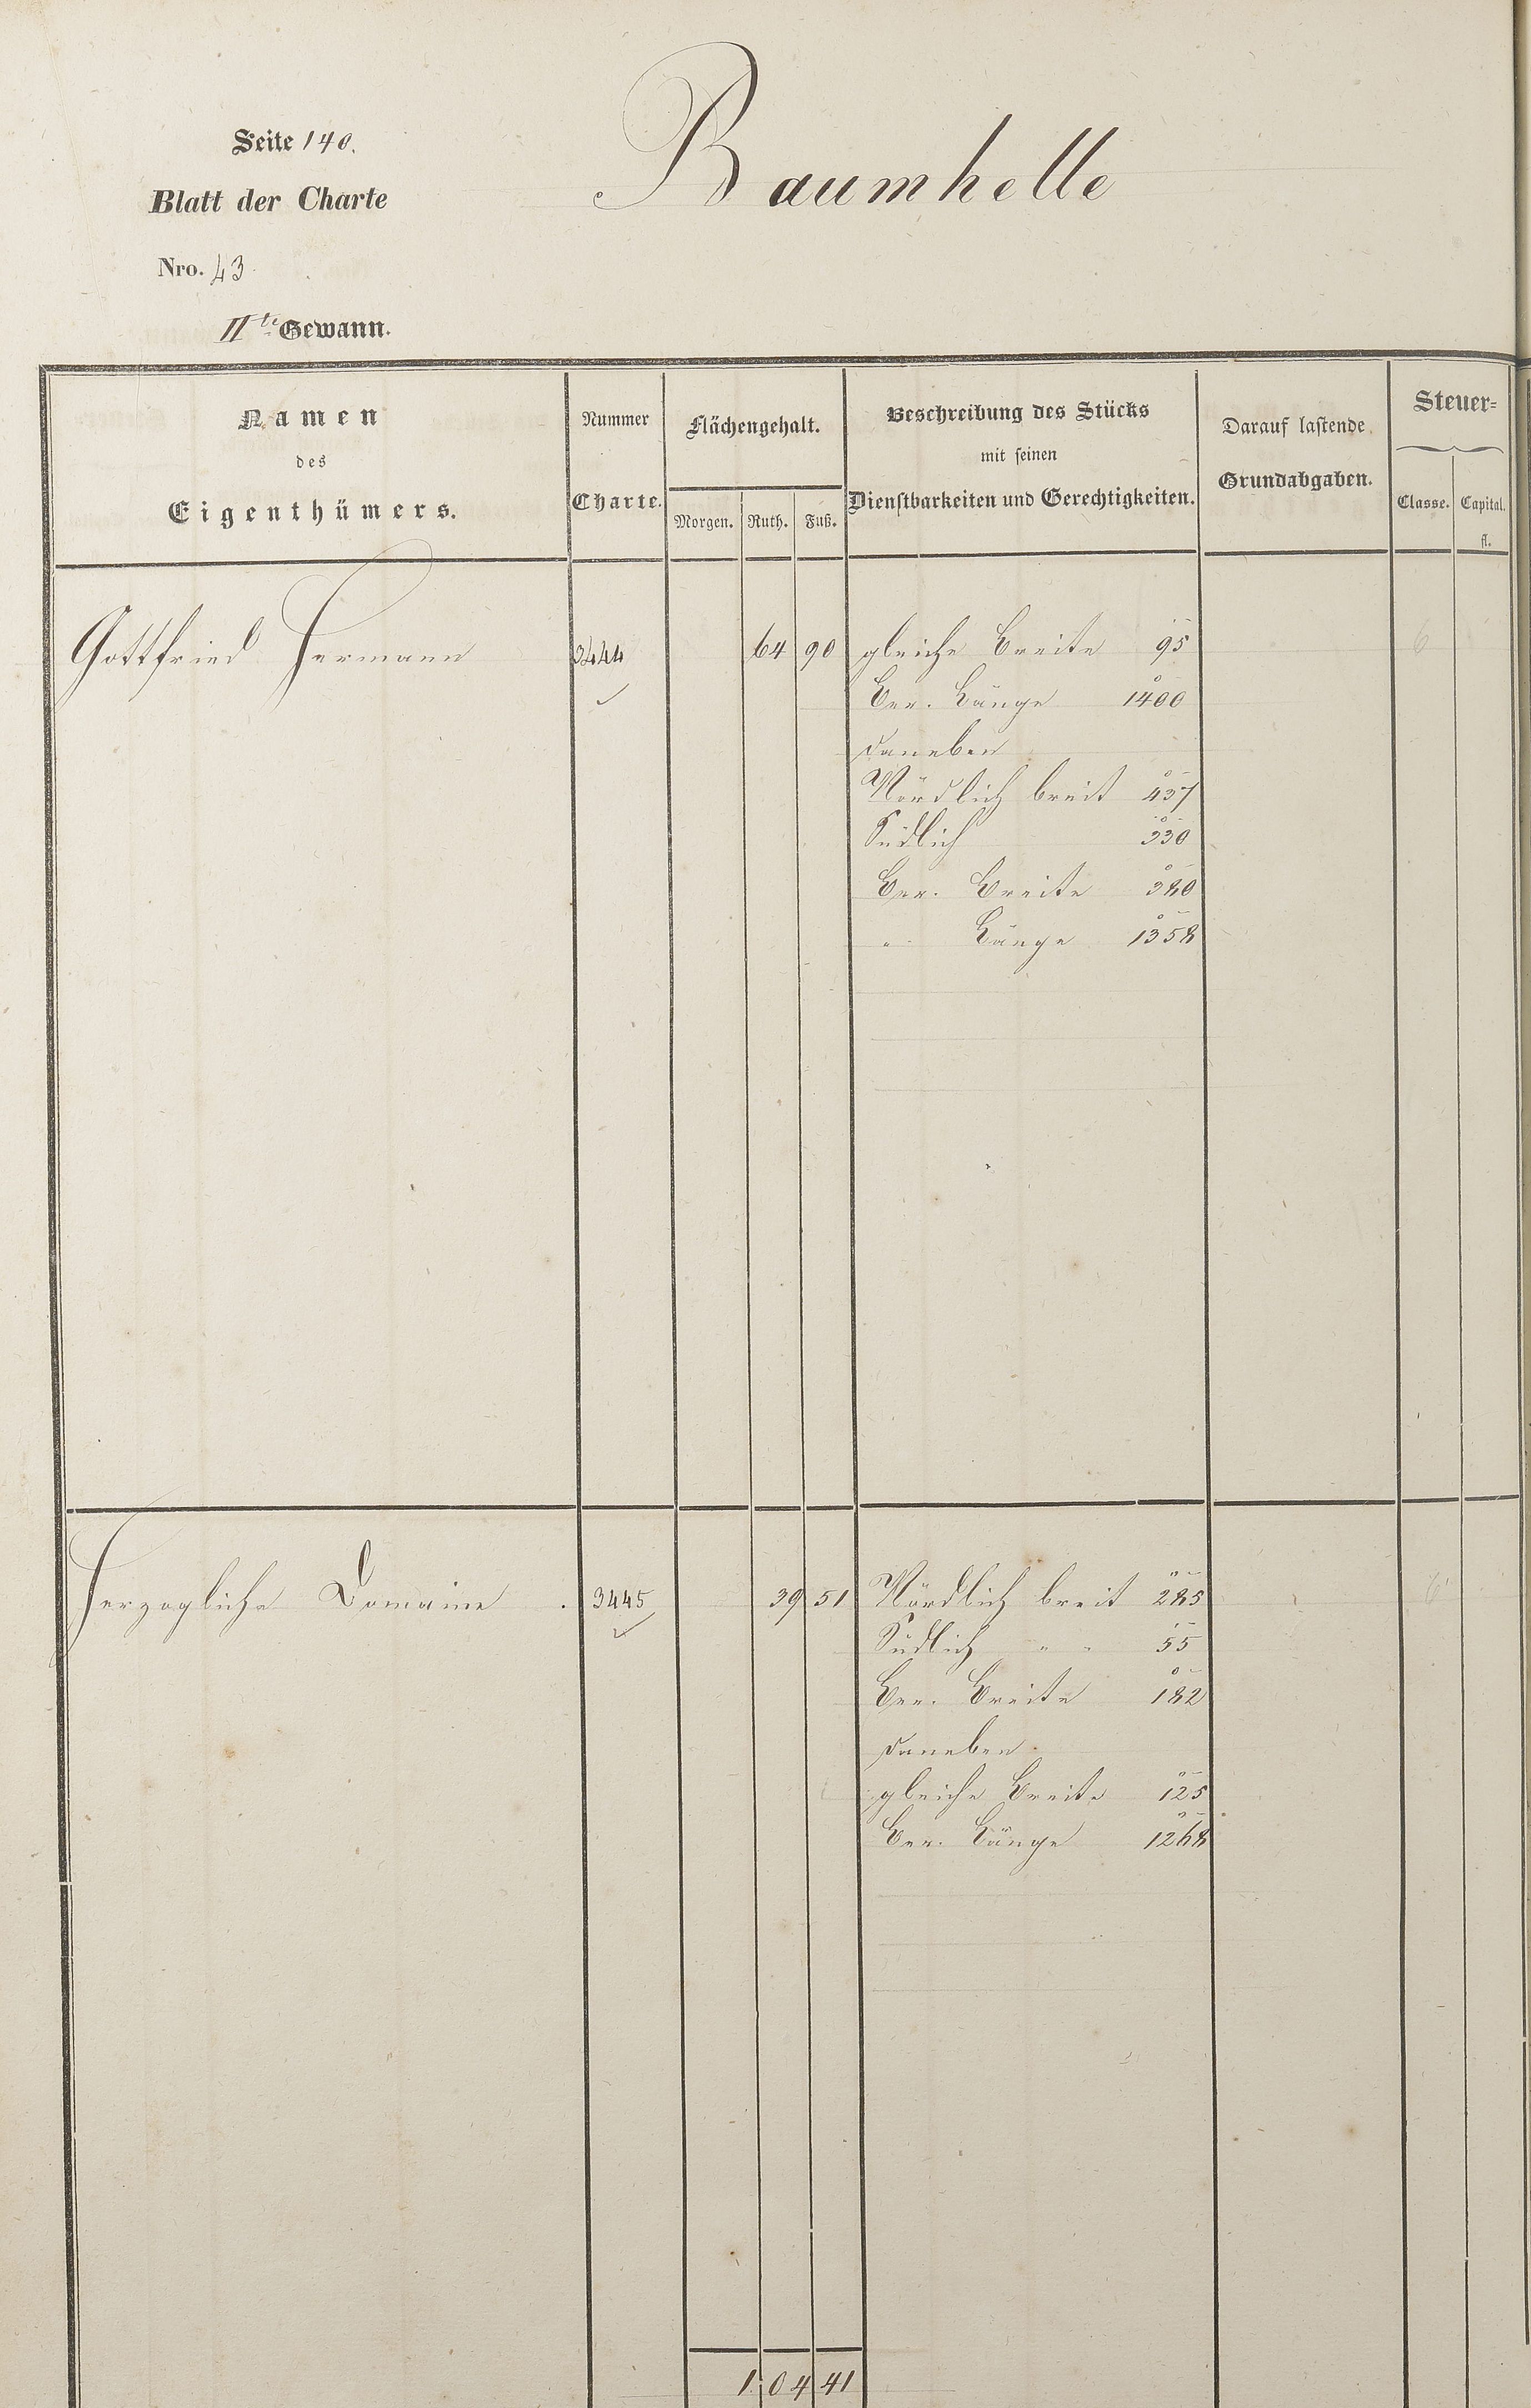 Baumhelle
Seite 140.
Blatt der Charte
Nro. 43
IIte Gewann.
Namen
des
Eigenthümers.
Nummer
Charte.
Flächengehalt.
Morgen. Ruth. Fuß.
Beschreibung des Stücks
mit seinen
Dienstbarkeiten und Gerechtigkeiten.
Darauf lastende
Grundabgaben.
Steuer=
Classe. Capital.
fl.
Gottfried Hermann 3444 64 90 gleiche Breite 95 6
Ber. Länge 1400
daneben
Nördlich breit 437
Südlich 330
Ber. Breite 380
" Länge 1358
Herzogliche Domaine 3445 39 51 Nördlich breit 285 6
Südlich " " 55
Ber. Breite 182
daneben
gleiche Breite 125
Ber. Länge 1268
1 04 41